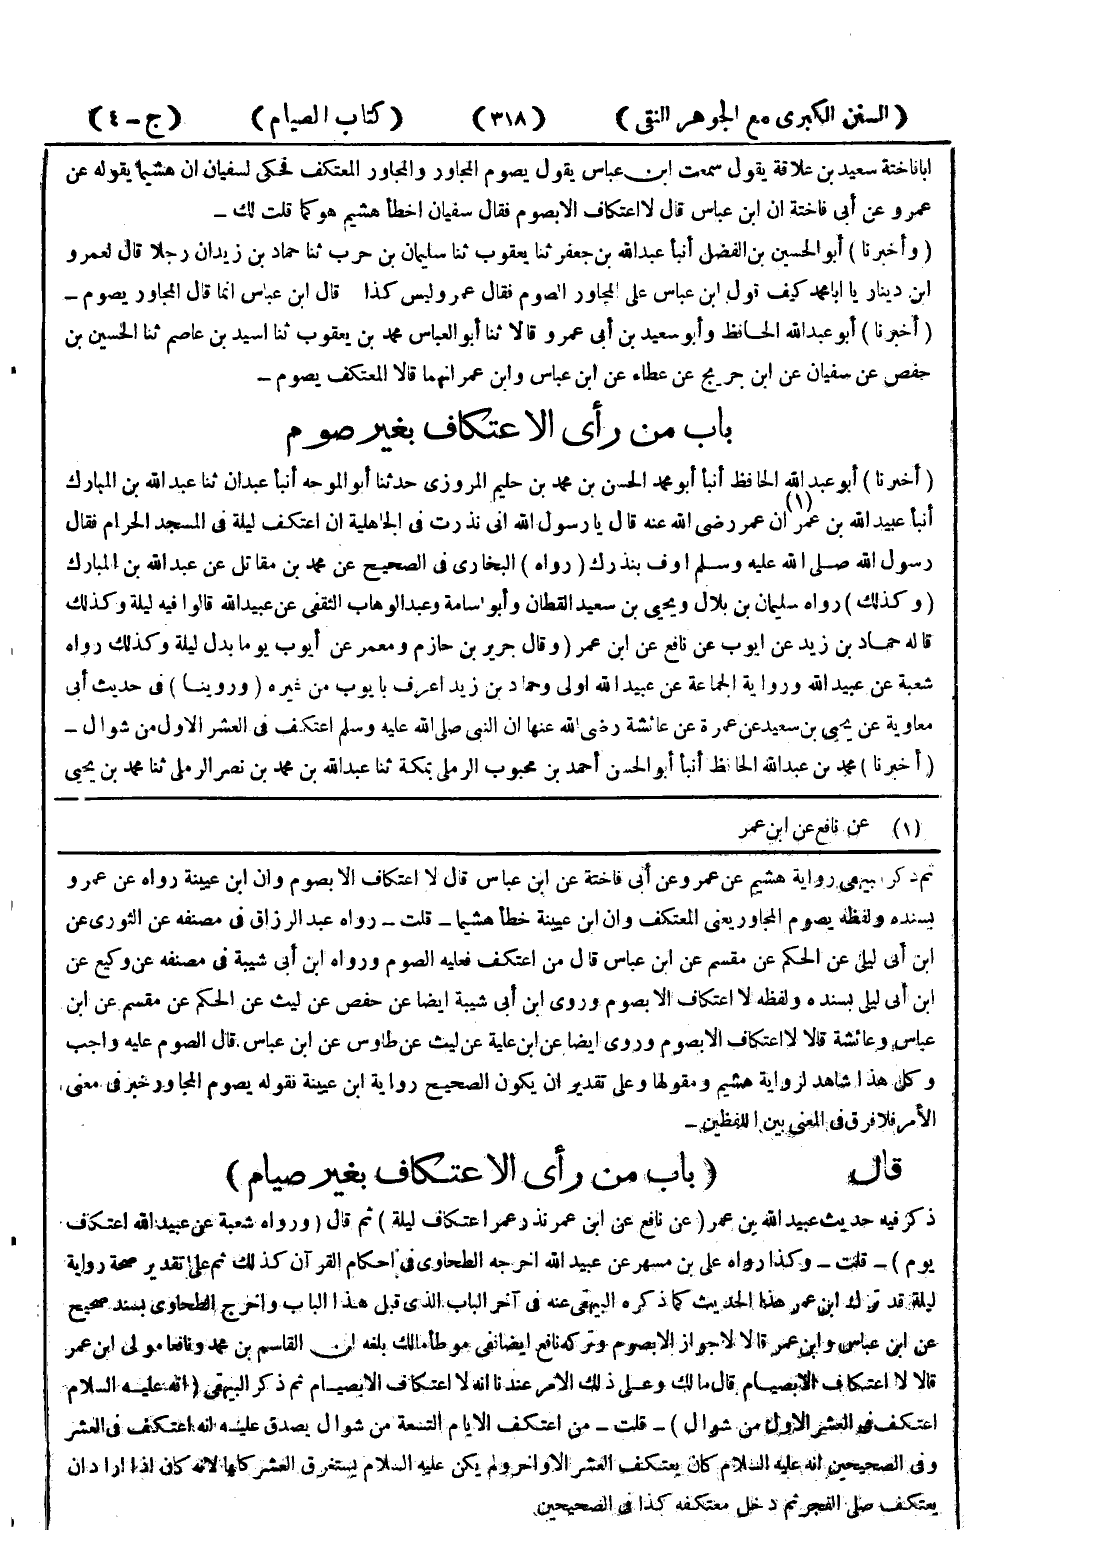 (السنن الكبرى مع الجوهر النقى) (٣١٨) (كتاب الصيام) (ج - ٤)
اباناختة سعيد بن علاقة يقول سمعت ابن عباس يقول يصوم المجاور والمجاور المعتكف فحكى لسفيان ان هشيما يقوله عن
عمرو عن أبى فاختة ان ابن عباس قال لا اعتكاف الابصوم فقال سفيان اخطأ هشيم هو كما قلت لك -
(وأخبرنا) أبو الحسين بن الفضل أنبأ عبدالله بن جعفر ثنا يعقوب ثنا سليمان بن حرب ثنا حماد بن زيدان رجلا قال لعمرو
ابن دينار يا ابا محمد كيف قول ابن عباس على المجاور الصوم فقال عمرو ليس كذا قال ابن عباس انما قال المجاور يصوم -
(أخبرنا) أبو عبدالله الحافظ وأبو سعيد بن أبى عمرو قالا ثنا أبو العباس محمد بن يعقوب ثنا اسيد بن عاصم ثنا الحسين بن
حفص عن سفيان عن ابن جريج عن عطاء عن ابن عباس وابن عمر انهما قالا المعتكف يصوم -
باب من رأى الاعتكاف بغير صوم
(أخبرنا) أبو عبد الله الحافظ أنبأ أبو محمد الحسن بن محمد بن حليم المروزى حدثنا أبو الموجه أنبأ عبدان ثنا عبد الله بن المبارك
أنبأ عبيد الله بن عمر (١) ان عمر رضى الله عنه قال يا رسول الله انى نذرت فى الجاهلية ان اعتكف ليلة فى المسجد الحرام فقال
رسول الله صلى الله عليه وسلم اوف بنذرك (رواه) البخارى فى الصحيح عن محمد بن مقاتل عن عبدالله بن المبارك
(وكذلك) رواه سليمان بن بلال ويحيى بن سعيد القطان وأبو اسامة وعبدالوهاب الثقفى عن عبيدالله قالوا فيه ليلة وكذلك
قاله حماد بن زيد عن ايوب عن نافع عن ابن عمر (وقال جرير بن حازم ومعمر عن أيوب يوما بدل ليلة وكذلك رواه
شعبة عن عبيد الله ورواية الجماعة عن عبيد الله اولى وحماد بن زيد اعرف بايوب من غيره (وروينا) فى حديث أبى
معاوية عن يحيى بن سعيد عن عمرة عن عائشة رضى الله عنها ان النبى صلى الله عليه وسلم اعتكف فى العشر الاول من شوال -
(أخبرنا) محمد بن عبدالله الحافظ أنبأ أبو الحسن أحمد بن محبوب الرملى بمكة ثنا عبدالله بن محمد بن نصر الرملى ثنا محمد بن يحيى
(١) عن نافع عن ابن عمر
ثم ذكر البيهقى رواية هشيم عن عمرو عن أبى فاختة عن ابن عباس قال لا اعتكاف الا بصوم وان ابن عيينة رواه عن عمرو
بسنده ولفظه يصوم المجاور يعنى المعتكف وان ابن عيينة خطأ هشيما - قلت - رواه عبد الرزاق فى مصنفه عن الثورى عن
ابن أبى ليلى عن الحكم عن مقسم عن ابن عباس قال من اعتكف فعليه الصوم ورواه ابن أبى شيبة فى مصنفه عن وكيع عن
ابن أبى ليلى بسنده ولفظه لا اعتكاف الا بصوم وروى ابن أبى شيبة ايضا عن حفص عن ليث عن الحكم عن مقسم عن ابن
عباس وعائشة قالا لا اعتكاف الابصوم وروى ايضا عن ابن علية عن ليث عن طاوس عن ابن عباس قال الصوم عليه واجب
وكل هذا شاهد لرواية هشيم ومقولها وعلى تقدير ان يكون الصحيح رواية ابن عيينة نقوله يصوم المجاور خبر فى معنى
الأمر فلا فرق فى المعنى بين اللفظين -
قال (باب من رأى الاعتكاف بغير صيام)
ذكر فيه حديث عبيد الله بن عمر (عن نافع عن ابن عمر نذر عمر اعتكاف ليلة) ثم قال (ورواه شعبة عن عبيد الله اعتكاف
يوم) - قلت - وكذا رواه على بن مسهر عن عبيد الله اخرجه الطحاوى فى احكام القرآن كذلك ثم على تقدير صحة رواية
ليلة قد ترك ابن عمر هذا الحديث كما ذكره البيهقى عنه فى آخر الباب الذى قبل هذا الباب واخرج الطحاوى بسند صحيح
عن ابن عباس وابن عمر قالا لا جواز الابصوم وتركه نافع ايضا ففى موطأ مالك بلغه ان القاسم بن محمد ونافعا مولى ابن عمر
قالا لا اعتكاف الابصيام قال مالك وعلى ذلك الامر عندنا انه لا اعتكاف الابصيام ثم ذكر البيهقى (انه عليه السلام
اعتكف فى العشر الاول من شوال) - قلت - من اعتكف الايام التسعة من شوال يصدق عليه انه اعتكف فى العشر
وفى الصحيحين انه عليه السلام كان يعتكف العشر الاواخر ولم يكن عليه السلام يستغرق العشر كلها لانه كان اذا اراد ان
يعتكف صلى الفجر ثم دخل معتكفه كذا فى الصحيحين